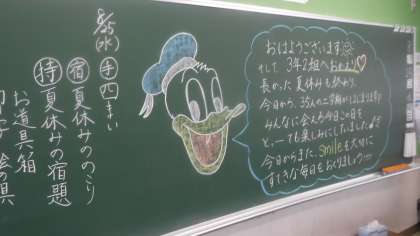 8/25(水)
手 四まい
宿 夏休みののこり
持 夏休みの宿題
お道具箱
絵の具
おはようございます
そして、3年2組へおかえり♡
長かった夏休みも終わり、
今日から、35人の二学期がはじまります
みんなに会える今日この日を
とーっても楽しみにしていました
今日からまた、Smileを大切に
すてきな毎日をおくりましょう!!